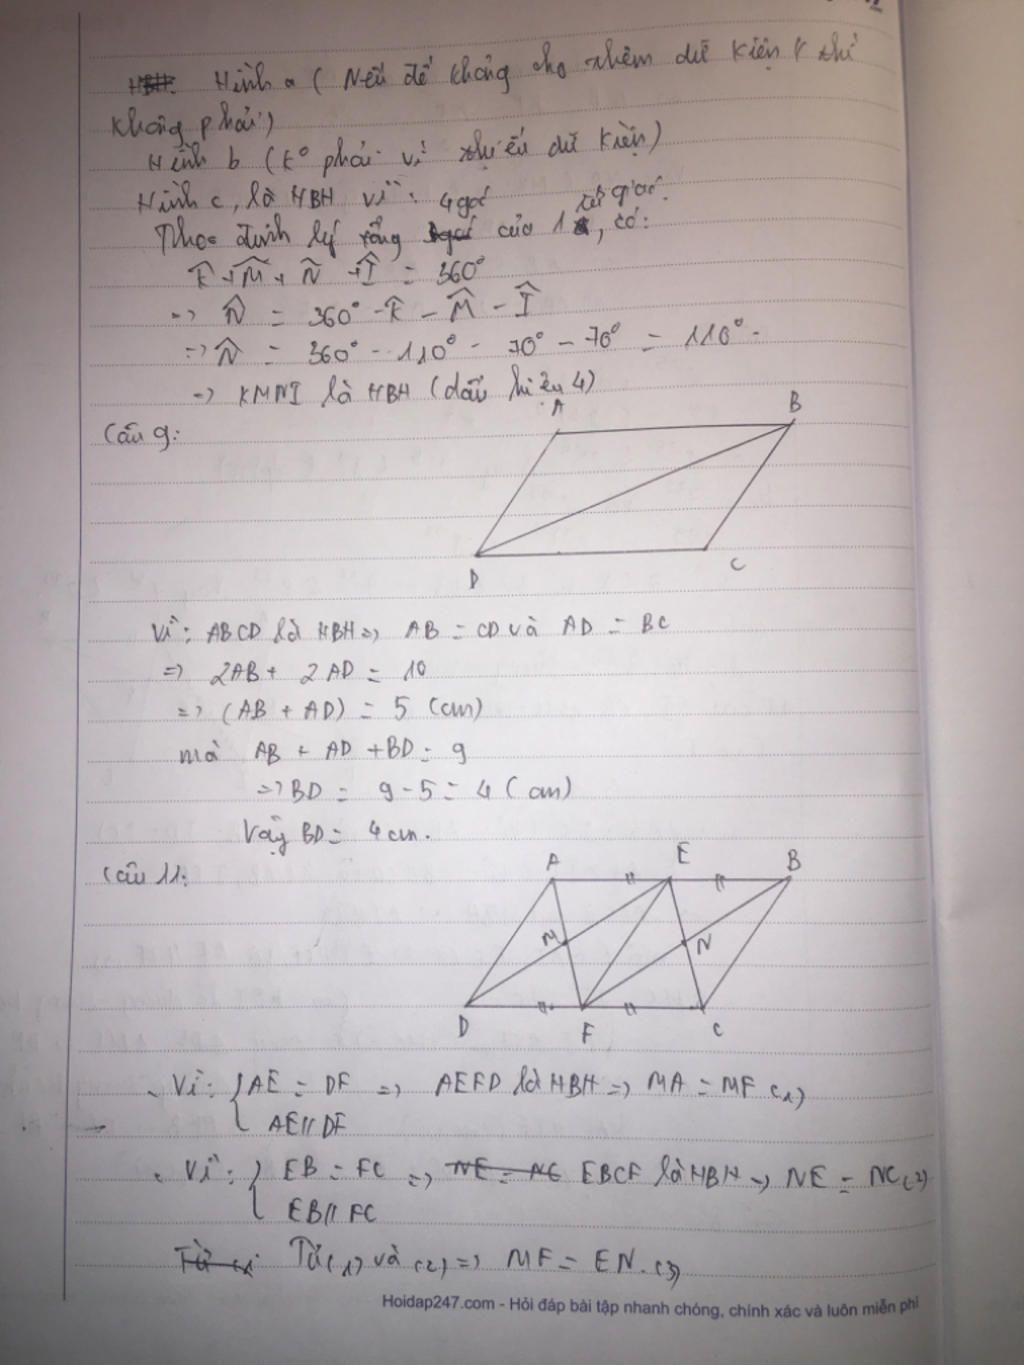 Hình a ( Nếu đề không cho thêm dữ kiện thì
không phải)
Hình b (k° phải vì thiếu dữ kiện)
Hình c, là HBH vì: 4 góc tứ giác.
Theo định lý tổng của 1, có:
K̂ + M̂ + N̂ + Î = 360°
=> N̂ = 360° - K̂ - M̂ - Î
=> N̂ = 360° - 110° - 70° - 70° = 110°.
=> KMNI là HBH (dấu hiệu 4)
Câu 9:
A
B
D
C
Vì: ABCD là HBH => AB = CD và AD = BC
=> 2AB + 2AD = 10
=> (AB + AD) = 5 (cm)
mà AB + AD + BD = 9
=> BD = 9 - 5 = 4 (cm)
Vậy BD = 4cm.
Câu 11:
A
E
B
M
N
D
F
C
Vì: { AE = DF => AEFD là HBH => MA = MF (1)
AE // DF
Vì: { EB = FC => NE = NC EBCF là HBH => NE = NC (2)
EB // FC
Từ (1) Từ (1) và (2) => MF = EN. (3)
Hoidap247.com - Hỏi đáp bài tập nhanh chóng, chính xác và luôn miễn phí